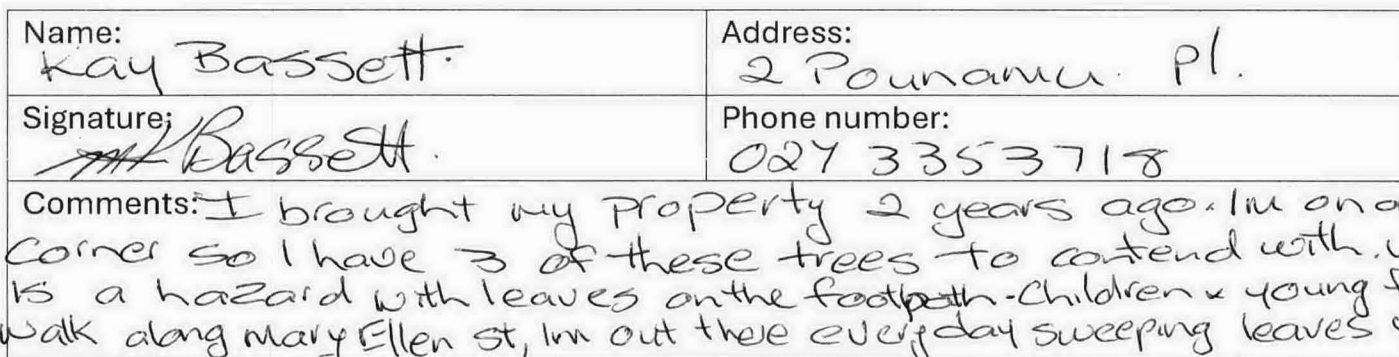 Name:
Kay Bassett.
Address:
2 Pounamu. Pl.
Signature:
Bassett.
Phone number:
027 3353718
Comments: I brought my property 2 years ago. Im on a
corner so I have 3 of these trees to contend with.
is a hazard with leaves on the footpath-Children & young
walk along Mary Ellen st, Im out there everyday sweeping leaves